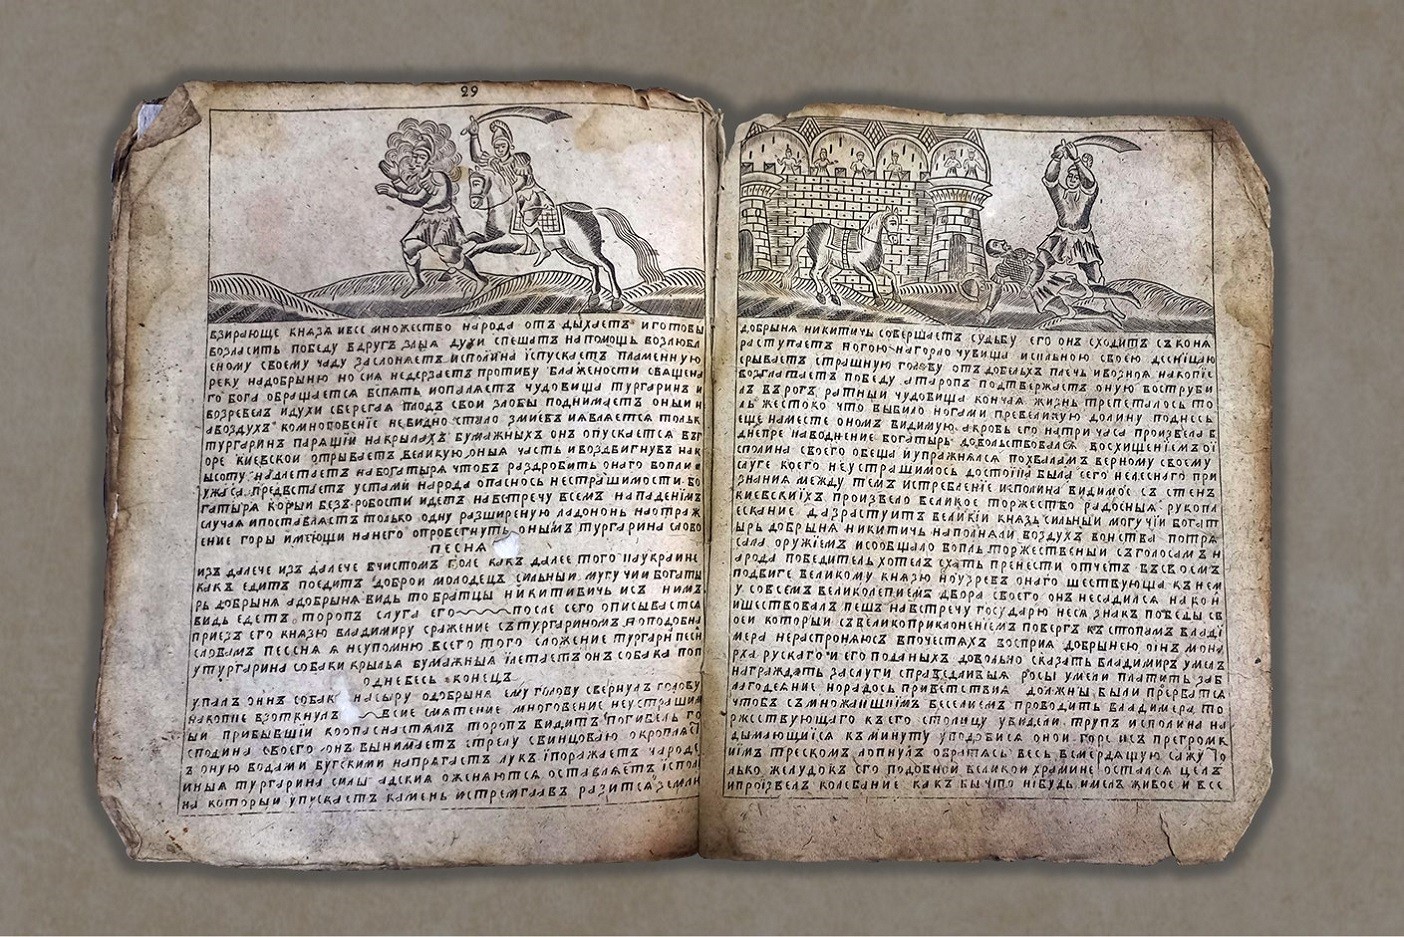 29
взирающе князя ивсе множество народа отъ дыхаетъ и готовы
возласить победу вдругъ злыя духи спешатъ на помощь возлюбл
еному своему чаду заслоняетъ исполина испускаетъ пламенную
реку надобрыню но сия недерзаетъ противу блажености священа
го бога обращается вспять иопаляетъ чудовища тургаринъ и
возревелъ идухи сберегая плодъ свои злобы поднимаетъ оныи н
авоздухъ комноповение невидно стало змиевъ иявляется тольк
тургаринъ паряшіи накрылахъ бумажныхъ онъ опускается въг
оре киевскои отрываетъ великую оныя часть ивоздвигнувъ нав
ысоту надлетаетъ на богатыря чтобъ раздробить онаго вопли и
ужаса предвстаетъ устами народа опаснось нестрашимости бо
гатыря кораи безъ робости идетъ навстречу всемъ нападенїмъ
случая ипоставляетъ только одну разширеную ладононь наотраж
ение горы имеющи нанего опровегнуть онымъ тургарина слово
песня
изъ далече изъ далече вчистомъ поле какъ далее того наукраине
какъ едитъ поедитъ доброи молодецъ сильныи мугучии богаты
рь добрыня адобрыня видь то братцы никитивичь исъ нимъ
видь едетъ торопъ слуга его после сего описывается
приезъ его князю владимиру сражение стургариномъ я оподобна
словамъ пессня я неупомню всего того сложение тургари песн
у тургарина собаки крылья бумажныя їлетаетъ онъ собака поп
однебесь конецъ
упалъ онъ собака насыру одобрыня ему голову свернулъ голову
накопие взоткнулъ всие смятение многовение неустрашим
ыи прибывшіи коопасна стялъ торопъ видитъ погибель го
сподина своего онъ вынимаетъ стрелу свинцоваю окропляеї
ъ оную водами бугскими напрягастъ лукъ їпоражаетъ чароде
иныя тургарина силы адския оженяются оставляетъ їспол
на которыи упускаетъ камень истремглавъ разится земли
добрыня никитичь совершаетъ судьбу его онъ сходитъ съ коня
раступаетъ ногою нагорло чувища исильною своею десніцаю
срываетъ страшную голову отъ добелыхъ плечь ивозняя накопїе
возглатаетъ победу аторопъ подтвержастъ оную вострубы
лъ въроть ратныи чудовища кончая жизнь трепеталось то
ль жестоко что выбило ногами превеликую долину поднесь
еще наместе ономъ видимую акровь его натри часа произвела в
днепре наводнение богатырь довольствовался восхищеніемъ ої
сполина своего обеща иупражнялся похваламъ верному своему
слуге коего неустрашимось достоїна была сего нелеснаго при
знания между темъ истребление исполина видимое съ стенъ
киевскихъ произвело великое торжество радосныя рукопл
ескание даздраствуитъ великїи князь сильныи могучіи богат
ырь добрыня никитичь наполняли воздухъ воиства потря
сала оружїемъ исообщало вопль торжественыи съголосамъ н
арода победитель хотелъ ехать пренести отчетъ въсвоемъ
подвиге великому князю ноузревъ онаго шествующа къ нем
у совсемъ великолепиемъ двора своего онъ несадился на кон
ишествовалъ пешъ навстречу государю неся знакъ победы св
оеи которыи съвеликоприклонениемъ повергъ къ стопамъ влади
мера нераспроняюсъ впочестяхъ восприа добрынею оінъ мона
рха рускаго и его поданыхъ довольно сказать владимиръ умелъ
награждать заслуги справедливыя росы умели платить заб
лагодеяние норадось приветствия должны были прерватся
чтобъ съмножаишімъ веселиемъ проводить владимера то
ржествующаго къ его столицу увидели трупъ исполина на
дымающиїся къ минуту уподобися онои горе исъ прегромк
иїмъ трескомъ лопнулъ обратясь весь всмердящую сажу то
лько желудокъ его подобнои великои храмине остался целъ
ипроїзвелъ колебание какъ бы что нібудь имелъ живое и все